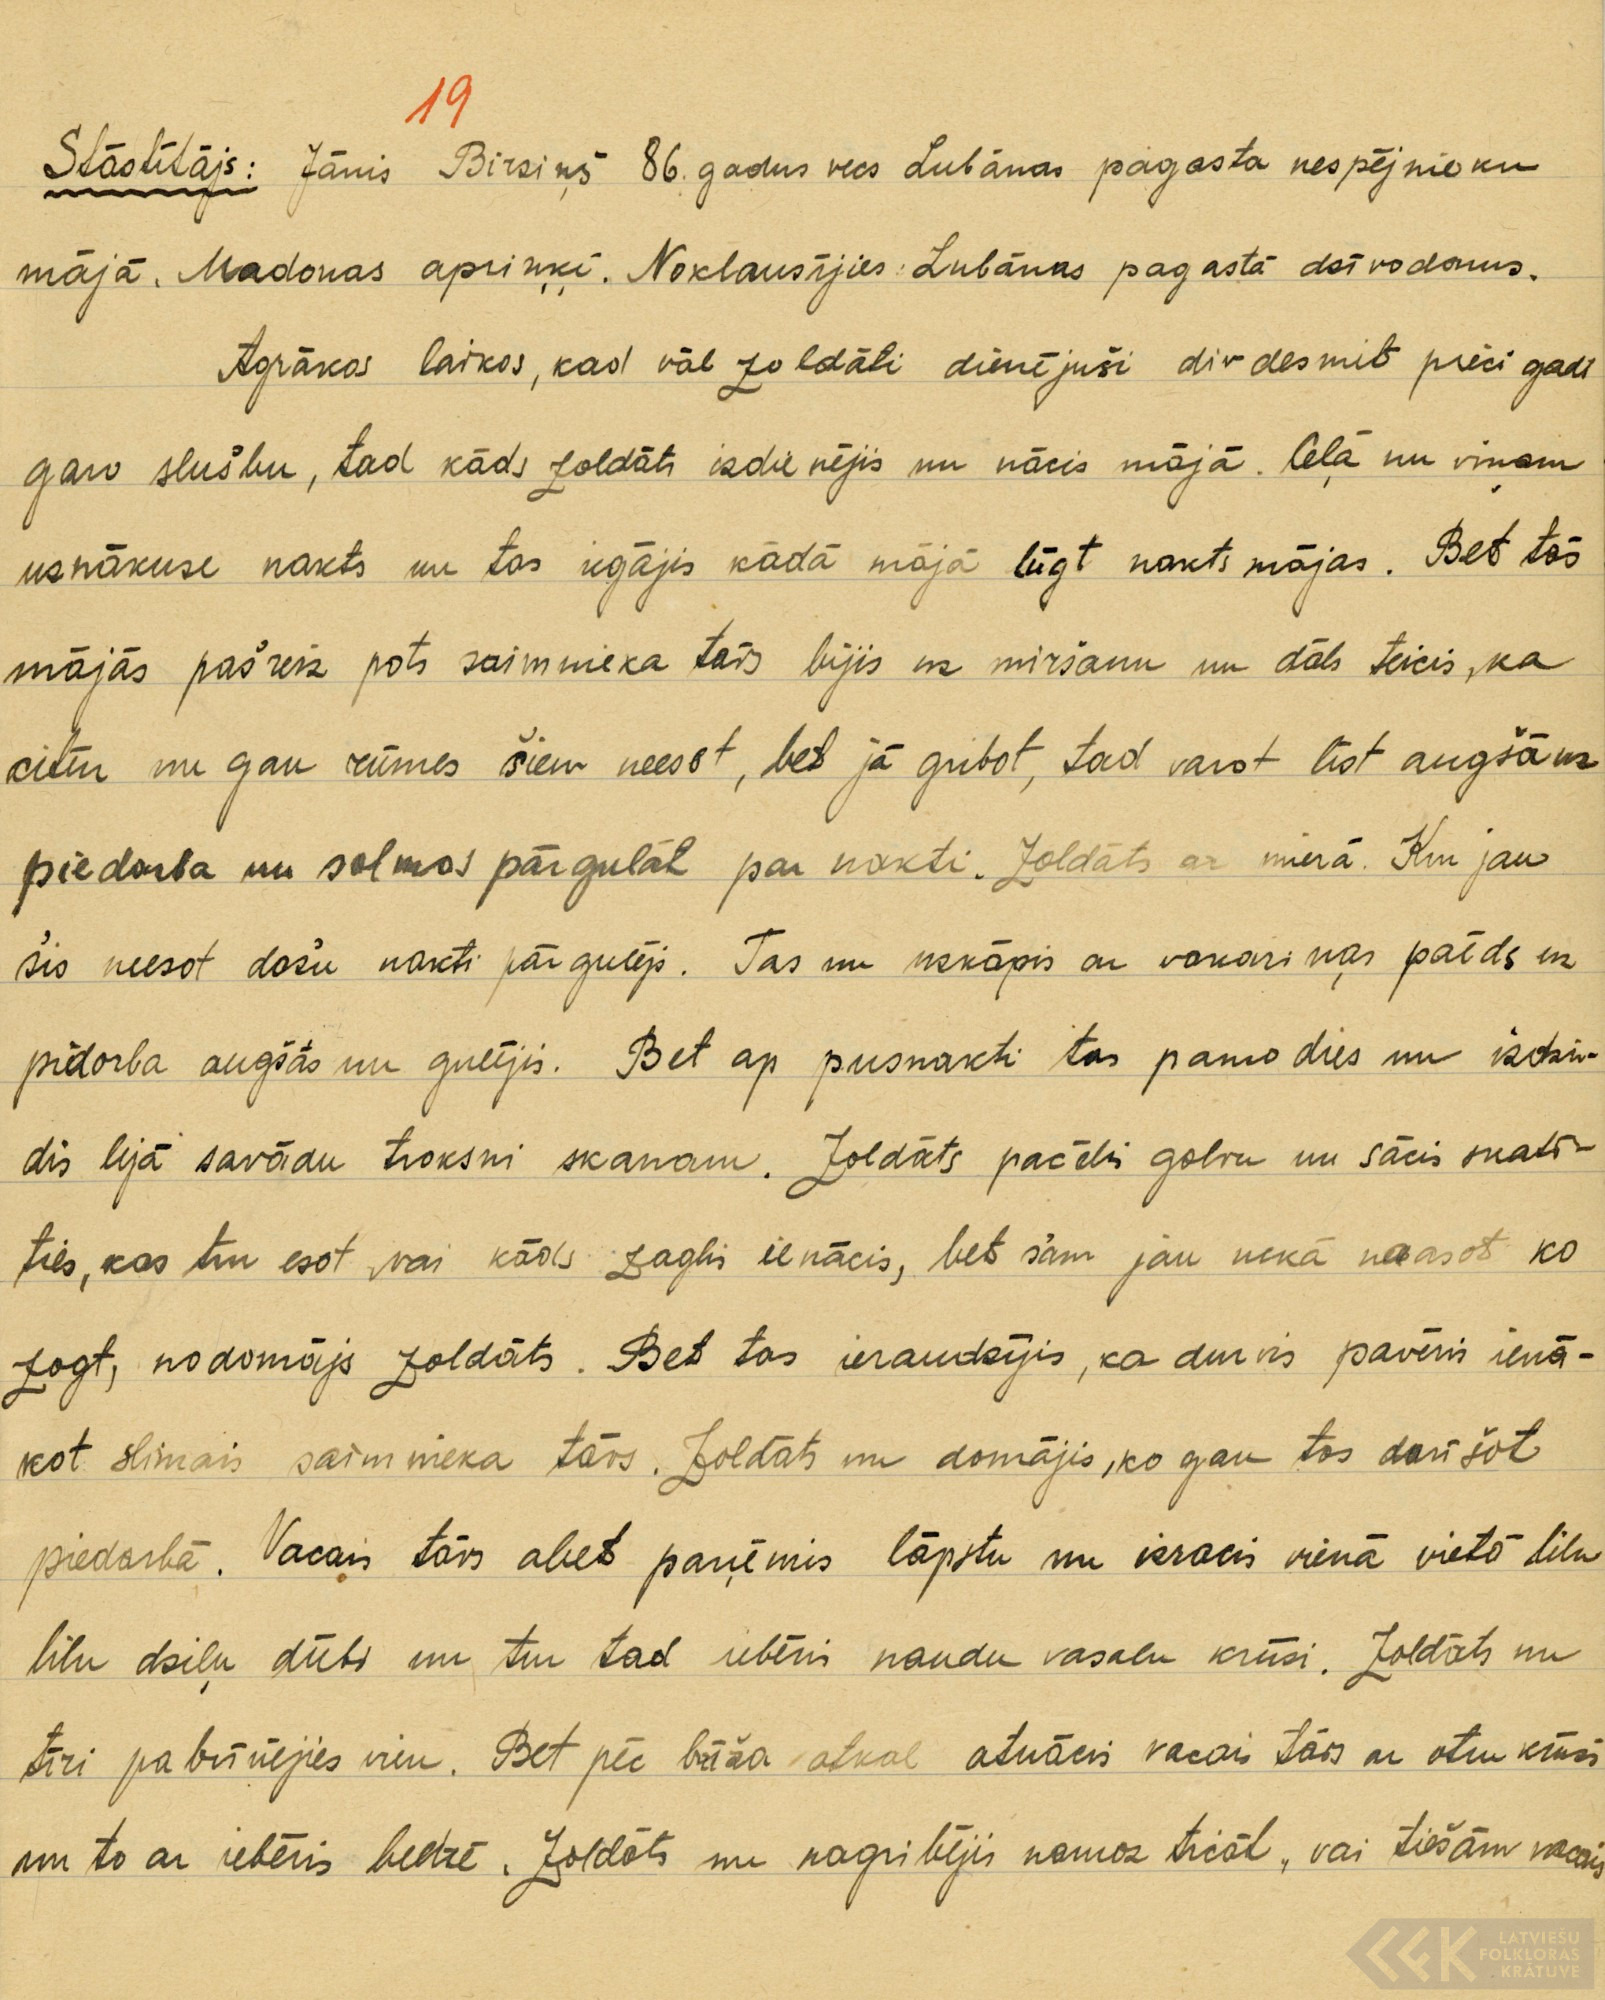 19
Stāstītājs: Jānis Birziņš 86. gadus vecs Lubānas pagasta nespējnieku
mājā. Madonas apriņķī. Noklausījies: Lubānas pagastā dzīvodams.
Agrākos laikos, kad vāl zoldāti dienējuši divdesmit pieci gadi
garo slušbu, tad kāds zoldāts izdienējis nu nācis mājā. Ceļā nu viņam
uznākuse nakts nu tas iegājis kādā mājā lūgt nakts mājas. Bet tās
mājās pašreiz pats saimnieka tāvs bījis uz miršanu nu dāls teicis, ka
citūr nu gan rūmes šiem neesot, bet jā gribot, tad varot līst augšā uz
piedarba nu salmos pārgulāt par nakti. Zoldāts ar mierā. Kur jau
šis neesot dažu nakti pārgulējs. Tas nu uzkāpis ar vakariņas paēds uz
pīdarba augšās nu gulējis. Bet ap pusnakti tas pamodies nu izdzir-
dis lejā savādu troksni skanam. Zoldāts pacēlis galvu nu sācis skatī-
ties, kas tur esot, vai kāds zaglis ienācis, bet šam jau nekā naasot ko
zogt, nodomājs zoldāts. Bet tas ieraudzījis, ka durvis pavēris ienā-
kot slimais saimnieka tāvs. Zoldāts nu domājis, ko gan tas darīšot
piedarbā. Vacais tāvs abet paņēmis lāpstu nu izracis vienā vietā lilu
lilu dziļu dūbi nu tur tad iebēris naudu vasalu krūzi. Zoldāts nu
tīri pabrīnējies vien. Bet pēc brīža atkal atnācis vacais tāvs ar otru krūzi
nu to ar iebēris bedrē. Zoldāts nu nagribējis namaz ticāt, vai tiešām vacais
LATVIEŠU
FOLKLORAS
KRĀTUVE